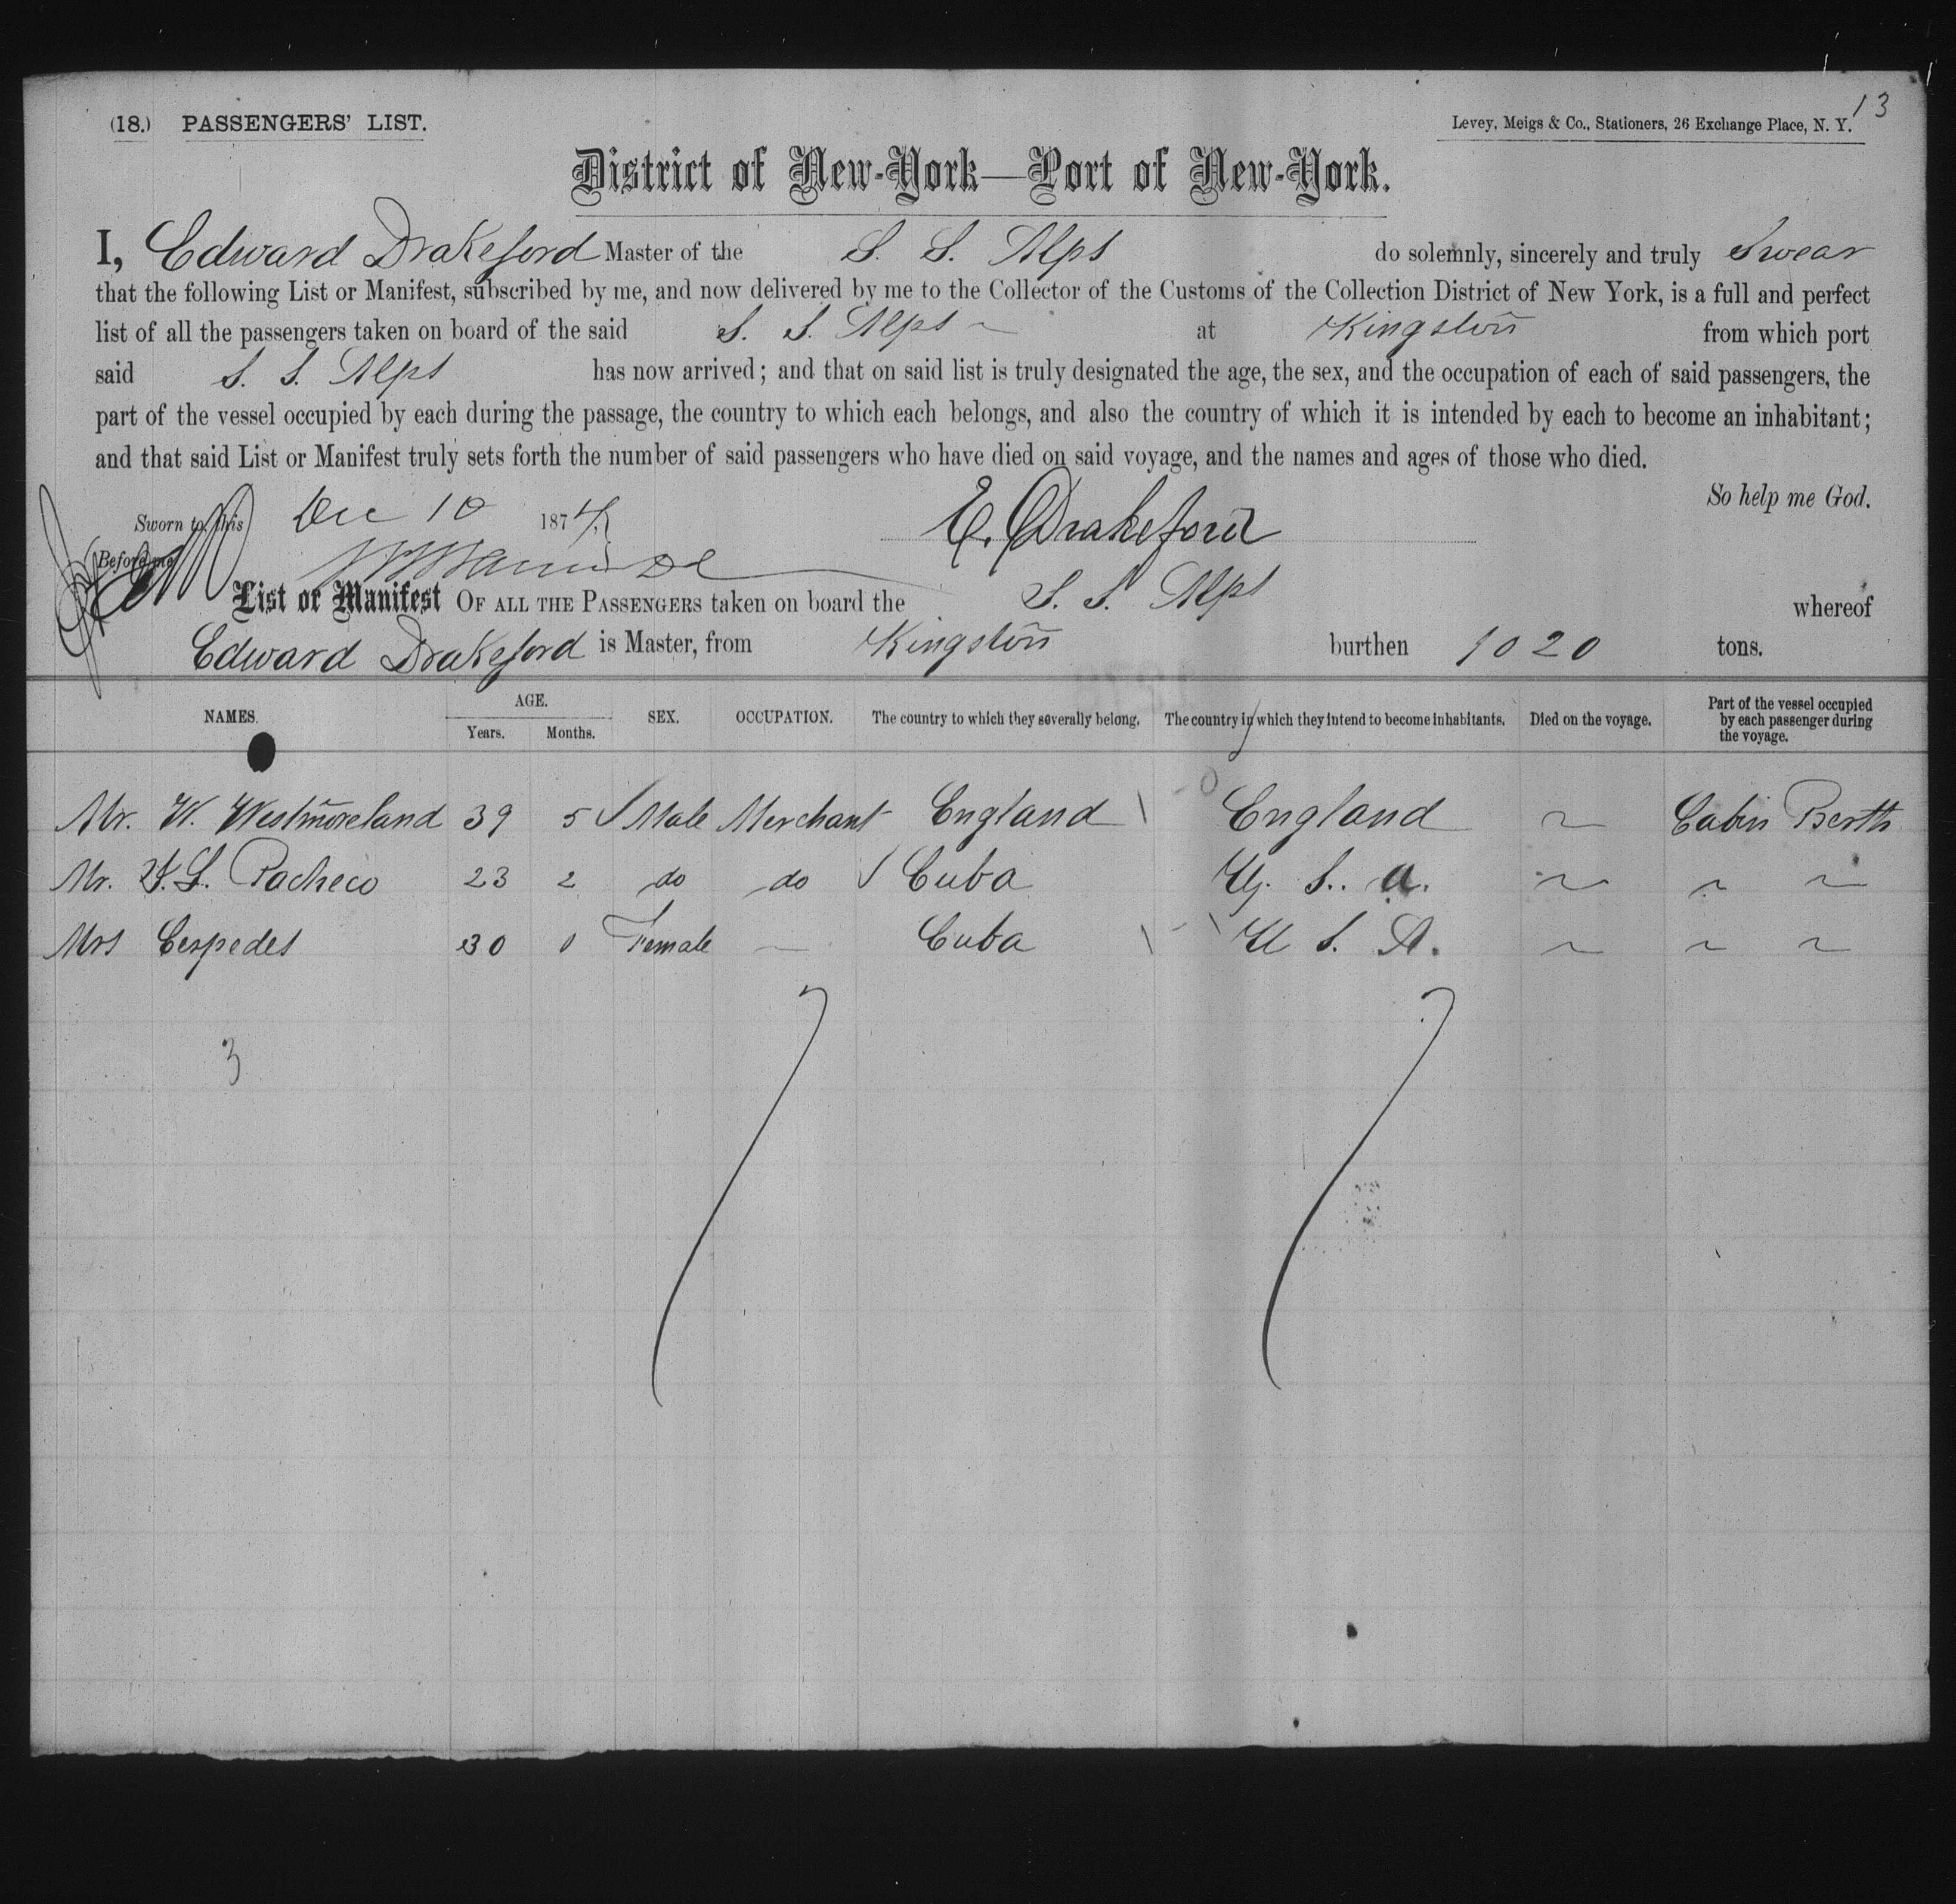 13
(18.) PASSENGERS' LIST. Levey, Meigs & Co., Stationers, 26 Exchange Place, N. Y.
District of New-York—Port of New-York.
I, Edward Drakeford Master of the S. S. Alps do solemnly, sincerely and truly Swear
that the following List or Manifest, subscribed by me, and now delivered by me to the Collector of the Customs of the Collection District of New York, is a full and perfect
list of all the passengers taken on board of the said S. S. Alps at Kingston from which port
said S. S. Alps has now arrived; and that on said list is truly designated the age, the sex, and the occupation of each of said passengers, the
part of the vessel occupied by each during the passage, the country to which each belongs, and also the country of which it is intended by each to become an inhabitant;
and that said List or Manifest truly sets forth the number of said passengers who have died on said voyage, and the names and ages of those who died.
So help me God.
Sworn to this Dec 10 1874 E. Drakeford
Before me
List or Manifest OF ALL THE PASSENGERS taken on board the S. S. Alps whereof
Edward Drakeford is Master, from Kingston burthen 1020 tons.
NAMES. AGE. Years. Months. SEX. OCCUPATION. The country to which they severally belong. The country in which they intend to become inhabitants. Died on the voyage. Part of the vessel occupied by each passenger during the voyage.
Mr. W. Westmoreland 39 5 Male Merchant England England Cabin Berth
Mr. L. Pacheco 23 2 do do Cuba U. S. A.
Mrs Cespedes 30 0 Female Cuba U S. A.
3